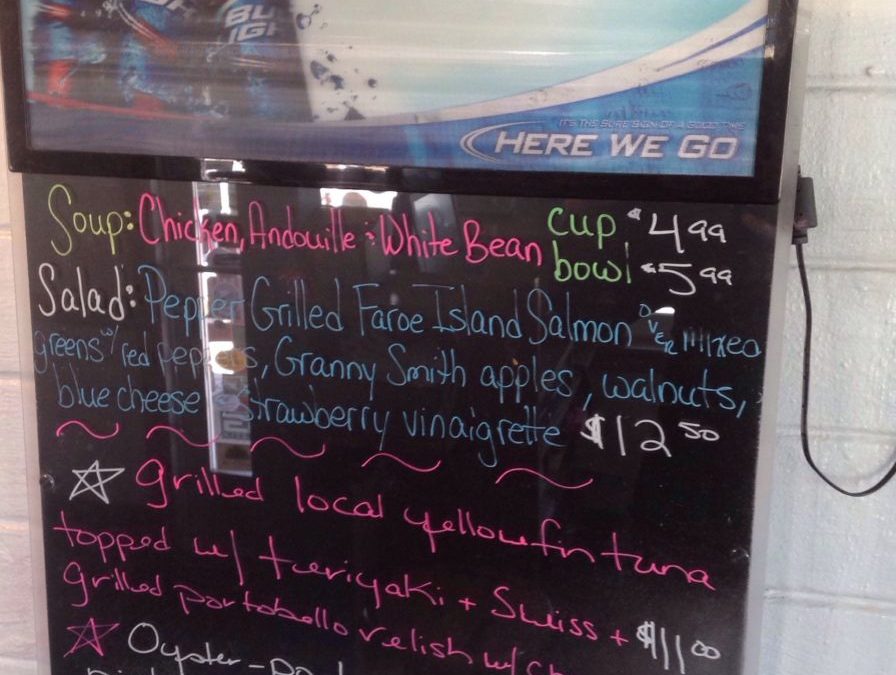 BUD
LIGHT
IT'S THE SURE SIGN OF A GOOD TIME
HERE WE GO
Soup: Chicken, Andouille & White Bean cup $4.99
bowl $5.99
Salad: Pepper Grilled Faroe Island Salmon over mixed
greens w/ red peppers, Granny Smith apples, walnuts,
blue cheese & strawberry vinaigrette $12.50
grilled local yellowfin tuna
topped w/ teriyaki + Swiss +
grilled portobello relish w/ $11.00
Oyster-